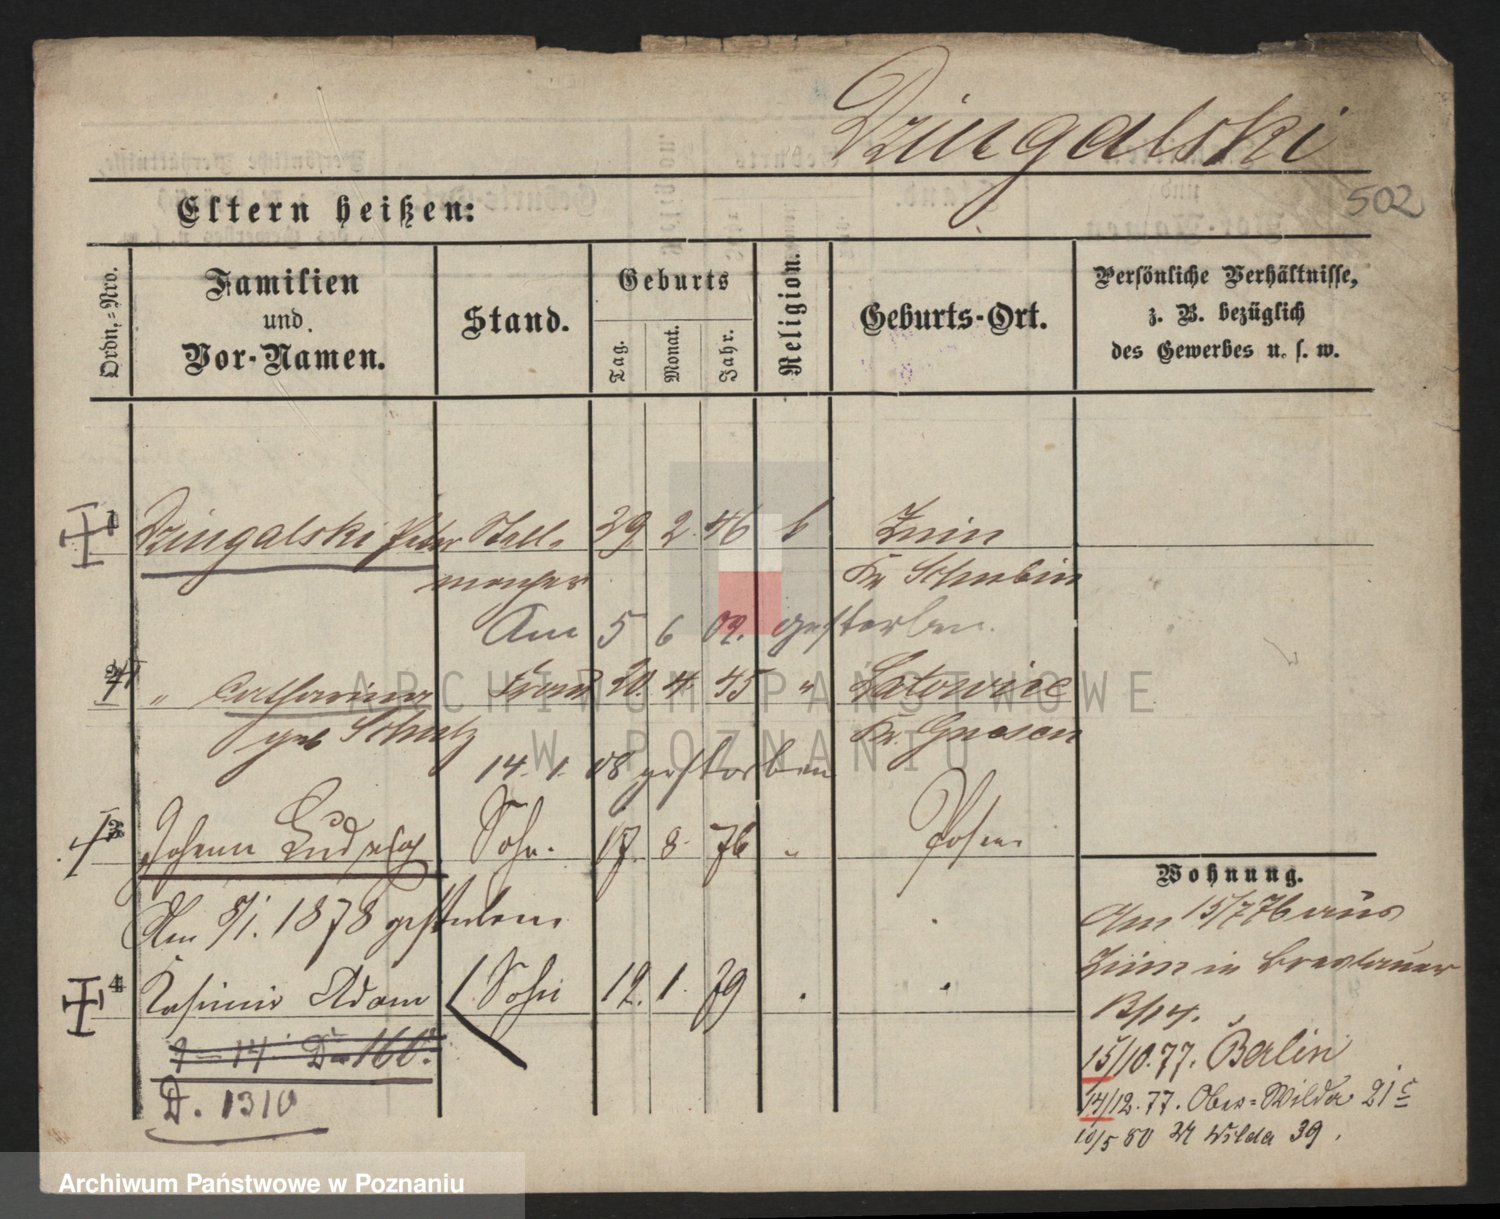 Dzingalski
502
Eltern heißen:
Ordn.-Nro.
Familien
und
Vor-Namen.
Stand.
Geburts
Tag.
Monat.
Jahr.
Religion.
Geburts-Ort.
Persönliche Verhältnisse,
z. B. bezüglich
des Gewerbes u. s. w.
1 Dzingalski Peter Stell- 29 2. 46 k Znin
macher Kr Schubin
Am 5 6 09. gestorben.
2 " Catharina Frau 20. 4. 45 " Latowice
geb Schulz Kr. Gnesen
14. 1. 08 gestorben
3 Johann Sohn. 17. 8. 76 " Posen
Am 8/1. 1878 gestorben
4 Kasimir Adam Sohn 12. 1. 79
7 - 14 D - 160.
D. 1310
Wohnung.
Am 15/7 76 aus
Znin in Breslauer
13/14.
15/10. 77. Berlin
14/12. 77. Ober-Wilda 21
10/5 80 Wilda 39.
ARCHIWUM PAŃSTWOWE
W POZNANIU
Archiwum Państwowe w Poznaniu